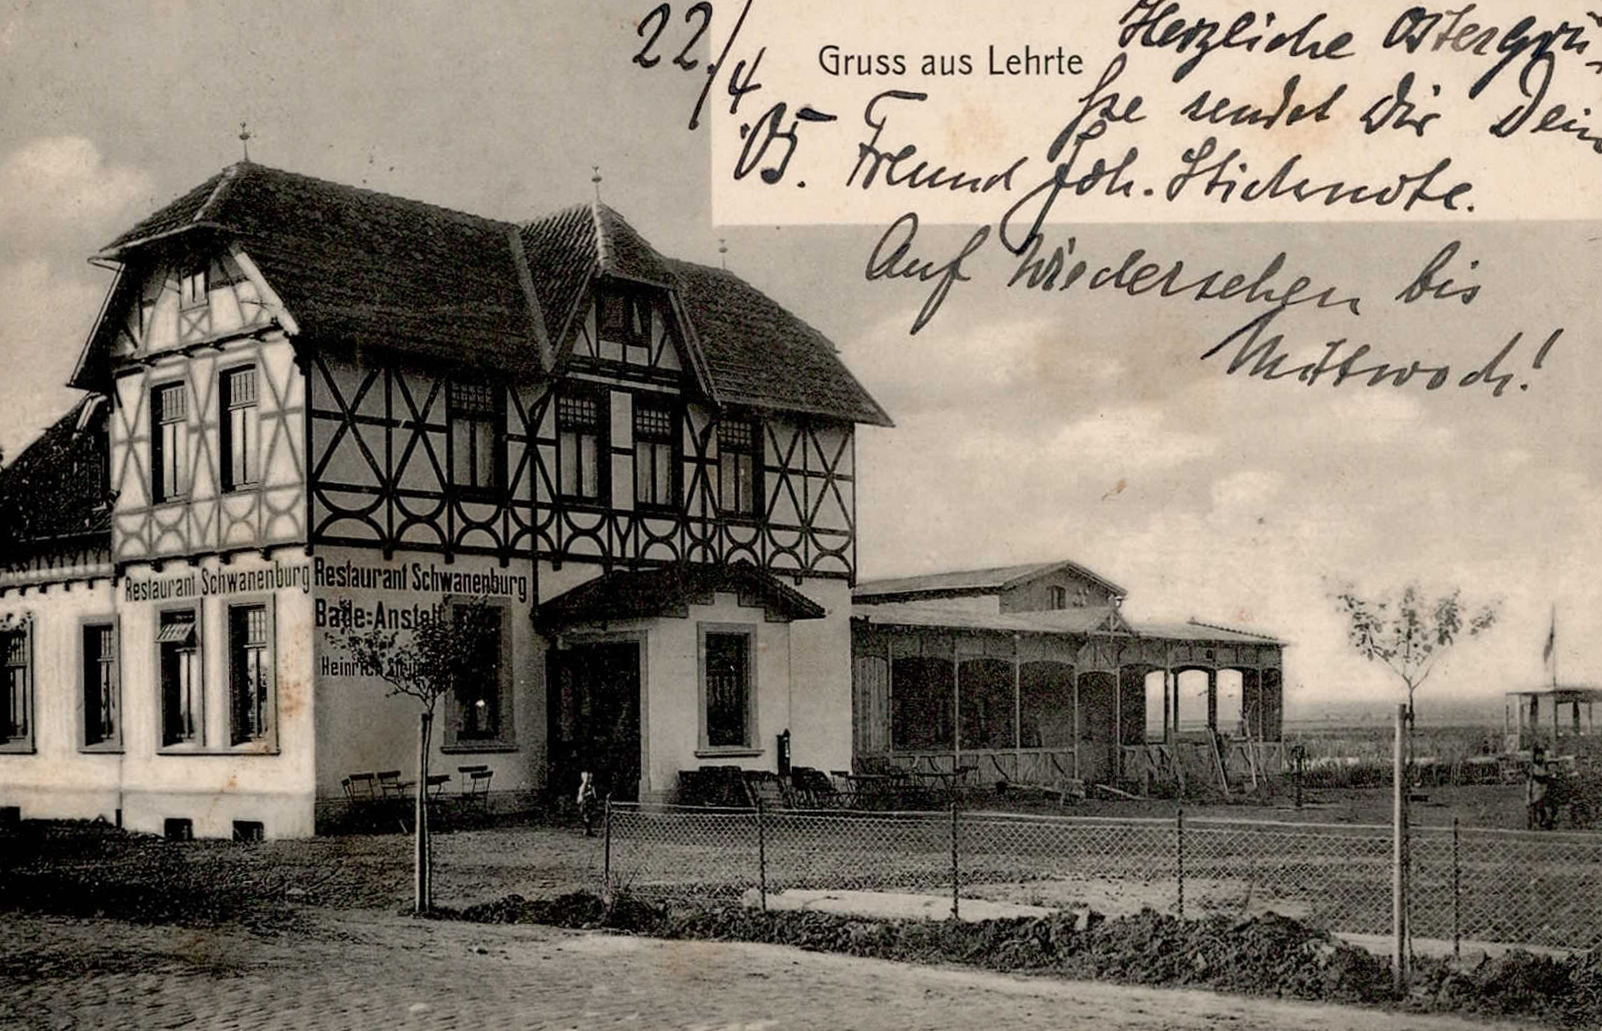 22/4
05.
Gruss aus Lehrte
Herzliche Ostergrü-
sse sendet Dir Dein
Freund Joh. Stichnote.
Auf Wiedersehen bis
Mittwoch!
Restaurant Schwanenburg
Restaurant Schwanenburg
Bade-Anstalt
Heinrich